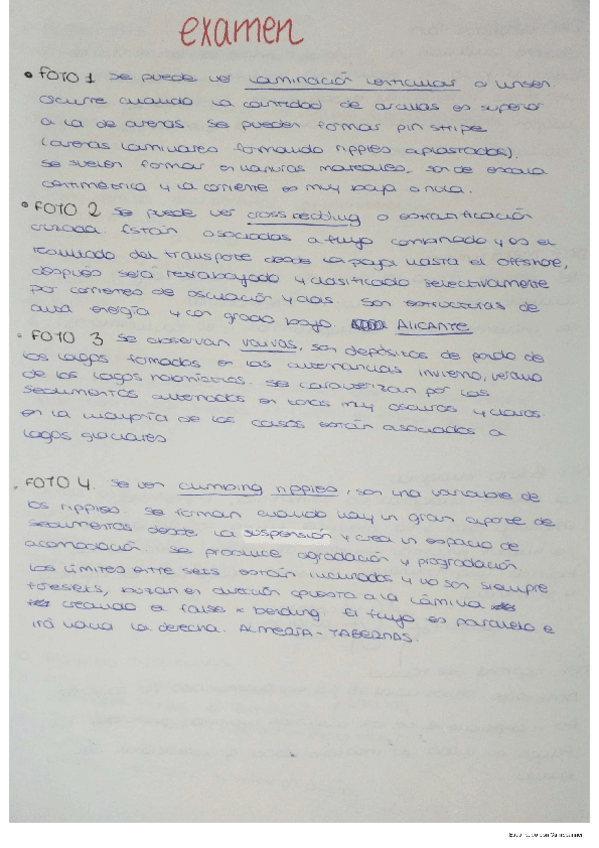 examen
• FOTO 1 Se puede ver laminación lenticular o linsen
ocurre cuando la cantidad de arcillas es superior
a la de arenas. Se pueden formar pin stripe
(arenas laminares formando ripples aplastados).
Se suelen formar en llanuras mareales, son de escala
centimétrica y la corriente es muy baja o nula.
• FOTO 2 Se puede ver cross bedding o estratificación
cruzada. Están asociadas a flujo combinado y es el
resultado del transporte desde la playa hasta el offshore,
después será retrabajado y clasificado selectivamente
por corrientes de oscilación y olas. Son estructuras de
alta energía y con grado bajo. ALICANTE
• FOTO 3 Se observan varvas, son depósitos de fondo de
los lagos formados en las alternancias invierno, verano
de los lagos. Se caracterizan por los
sedimentos alternados en tonos muy oscuros y claros.
en la mayoría de los casos están asociados a
lagos glaciares
• FOTO 4. Se ven climbing ripples, son una variable de
los ripples. Se forman cuando hay un gran aporte de
sedimentos desde la suspensión y crea un espacio de
acomodación. Se produce agradación y progradación.
Los límites entre sets están inclinados y no son siempre
foresets, buzan en dirección opuesta a la lámina
creando el false-bedding. El flujo es paralelo e
irá hacia la derecha. ALMERÍA - TABERNAS.